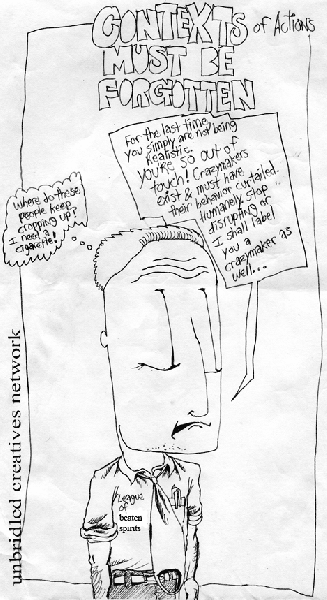 CONTEXTS of Actions
MUST BE
FORGOTTEN
For the last time,
you simply are not being
realistic.
you're so out of
touch! Crazymakers
exist & must have
their behavior curtailed
humanely. Stop
disrupting or
I shall label
you a
crazymaker as
well...
Where do these
people keep
cropping up?
I need a
cigarette!
unbridled creatives network
League
of
beaten
spirits